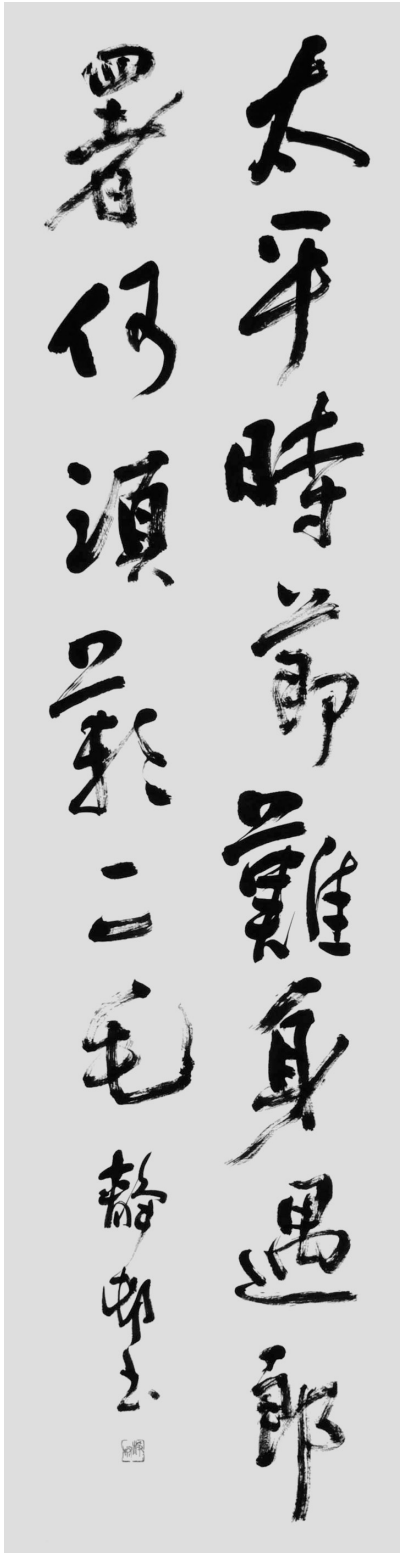 太平時節難身遇郎
署何須歎二毛
静邨书